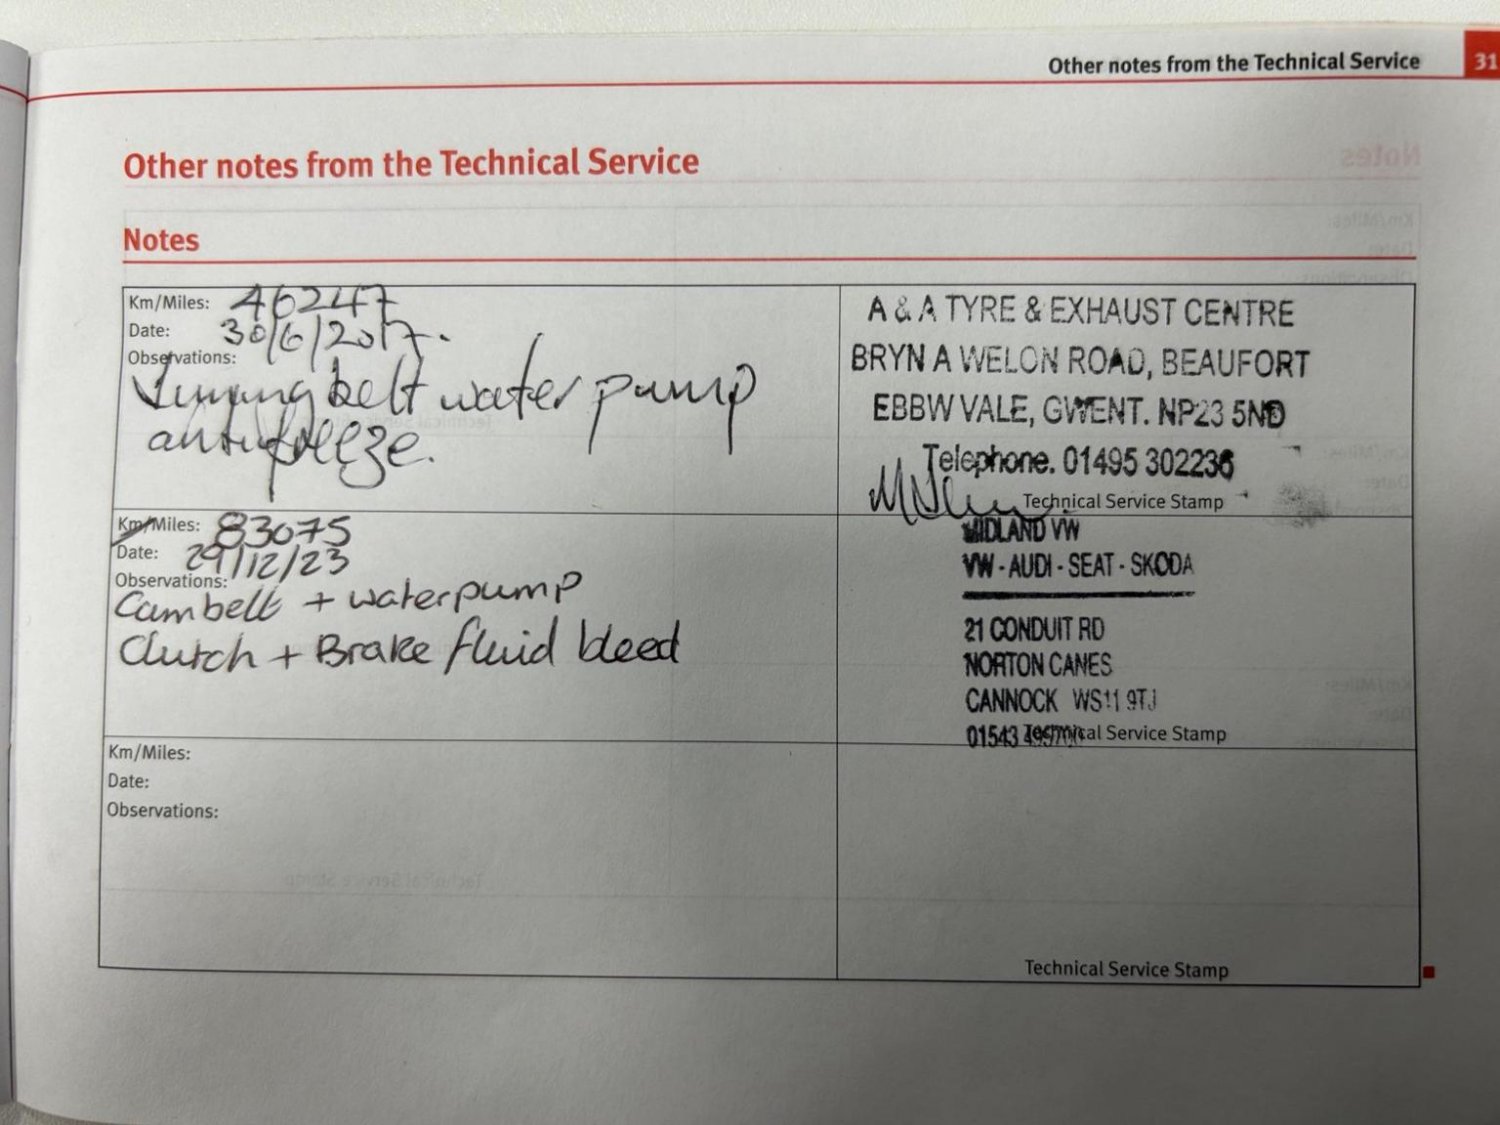 Other notes from the Technical Service 31
Other notes from the Technical Service
Notes
Km/Miles: 46247
Date: 30/6/2017.
Observations:
Timing belt water pump
antifreeze.
A & A TYRE & EXHAUST CENTRE
BRYN A WELON ROAD, BEAUFORT
EBBW VALE, GWENT. NP23 5ND
Telephone. 01495 302236
Technical Service Stamp
Km/Miles: 83075
Date: 29/12/23
Observations:
Cambelt + waterpump
Clutch + Brake fluid bleed
MIDLAND VW
VW - AUDI - SEAT - SKODA
21 CONDUIT RD
NORTON CANES
CANNOCK WS11 9TJ
01543
Technical Service Stamp
Km/Miles:
Date:
Observations:
Technical Service Stamp